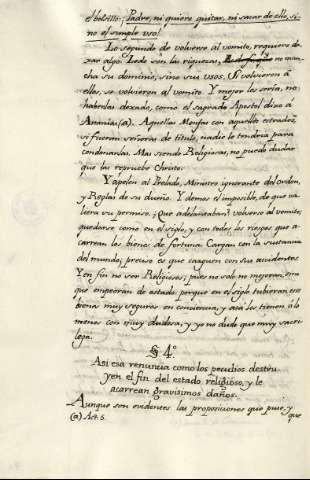 el bolsillo: ¡Padre, ni quiere quitar, ni sacar de ello, si-
no el simple uso!
Lo segundo de volverse al vomito, requiere de-
xar algo. Lodo son las riquezas, no man-
cha su dominio, sino sus usos. Si volvieron á
ellas, se volvieron al vomito. Y mejor les seria, no
haberlas dexado, como el sagrado Apostol dixo a
Ananias (a). Aquellas Monjas con aquello
si fueran señoras de titulo, nadie lo tendria para
condenarlas. Mas siendo Religiosas, no puede dudar
que las reprueba Christo.
Y apelen al Prelado, Ministro ignorante del Orden,
y Reglas de su dueño. Y demos el imposible, de que va-
liera su permiso. ¿Que adelantaban? volverse al vomito,
quedarse como en el siglo, y con todos los riesgos que a-
carrean los bienes de fortuna. Cargan con la sustancia
del mundo; preciso es que caguen con sus accidentes.
Y en fin no ser Religiosas; pues no solo no mejoran, sino
que empeoran de estado: porque en el siglo tubieran, esos
bienes muy seguros en conciencia, y acá les tienen á lo
menos con muy dudosa, y yo no dudo que muy sacri-
lega.
§ 4.º
Asi esa renuncia como los peculios destru-
yen el fin del estado religioso, y le
acarrean gravisimos daños.
Aunque son evidentes las proposiciones que puse, y
(a) Act. 5. que